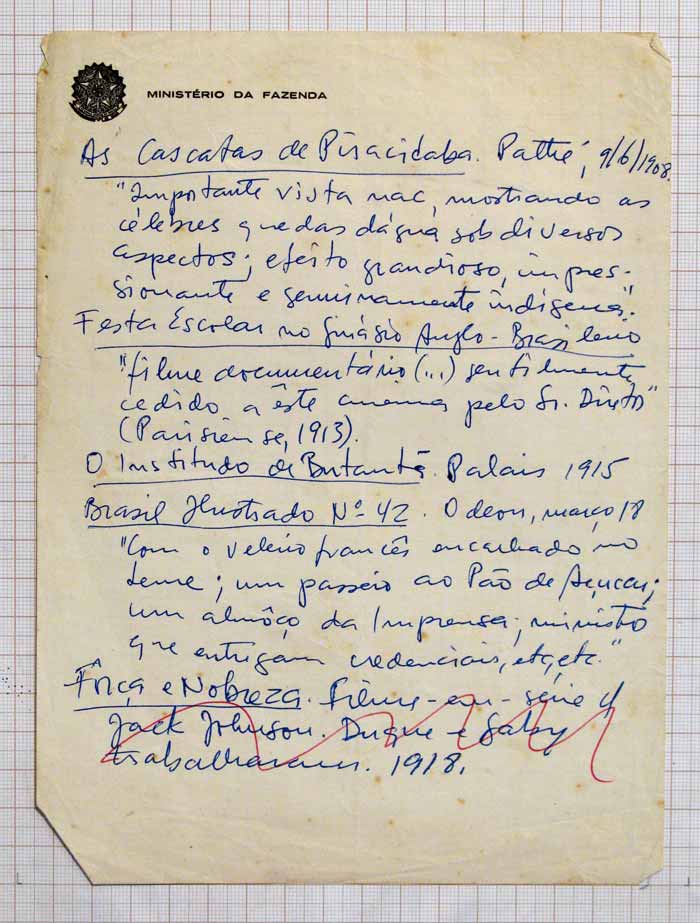 MINISTÉRIO DA FAZENDA
As Cascatas de Piracicaba. Pathé, 9/6/1908.
"Importante vista nac, mostrando as
célebres quedas dágua sob diversos
aspectos; efeito grandioso, impres-
sionante e genuinamente indígena".
Festa Escolar no Ginásio Anglo-Brasileiro
"filme documentário (...) gentilmente
cedido a êste cinema pelo Sr. Diretor"
(Parisiense, 1913).
O Instituto de Butantã. Palais 1915
Brasil Ilustrado Nº 42. Odeon, março 18
"Com o veleiro francês encalhado no
Leme; um passeio ao Pão de Açucar;
um almôço da Imprensa; ministro
que entregam credenciais, etc, etc."
Fôrça e Nobreza. Filme-em-série c/
Jack Johnson. Duque e Gaby
trabalharam. 1918.